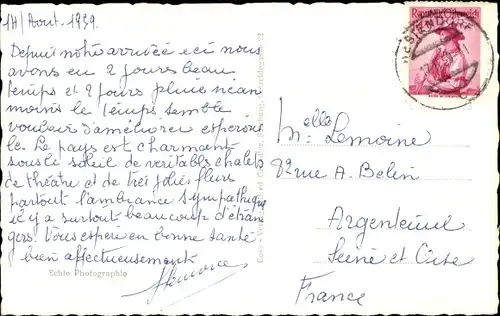 17/Aout. 1959.
Depuis notre arrivée ici nous
avons eu 2 jours beau
temps et 2 jours pluie néan
moins le temps semble
vouloir s'améliorer espérons
le. Le pays est charmant
sous le soleil de veritables chalets
de théatre et de très jolies fleurs
partout l'ambiance sympathique
il y a surtout beaucoup d'étran
gers. Vous espère en bonne santé
bien affectueusement
Echte Photographie
Republik Österreich
Melle Lemoine
82 rue A. Belin
Argenteuil
Seine et Oise
France